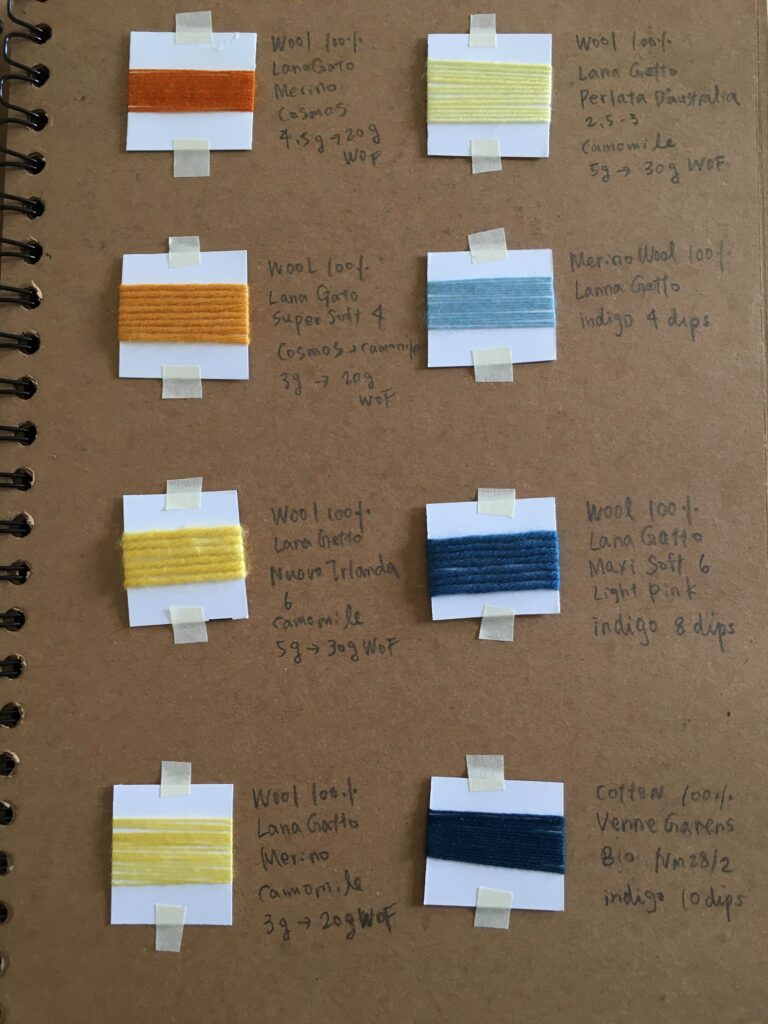 Wool 100%
LanaGato
Merino
Cosmos
4.5g → 20g
WOF
Wool 100%
Lana Gatto
Perlata D'australia
2.5-3
Camomile
5g → 30g WOF
Wool 100%
Lana Gato
Super Soft 4
Cosmos + Camomile
3g → 20g
WOF
Merino Wool 100%
Lanna Gatto
indigo 4 dips
Wool 100%
Lana Gatto
Nuovo Irlanda
6
Camomile
5g → 30g WOF
Wool 100%
Lana Gatto
Maxi Soft 6
Light Pink
indigo 8 dips
Wool 100%
Lana Gatto
Merino
Camomile
3g → 20g WOF
Cotton 100%
Venne Garens
Bio Nm28/2
indigo 10 dips